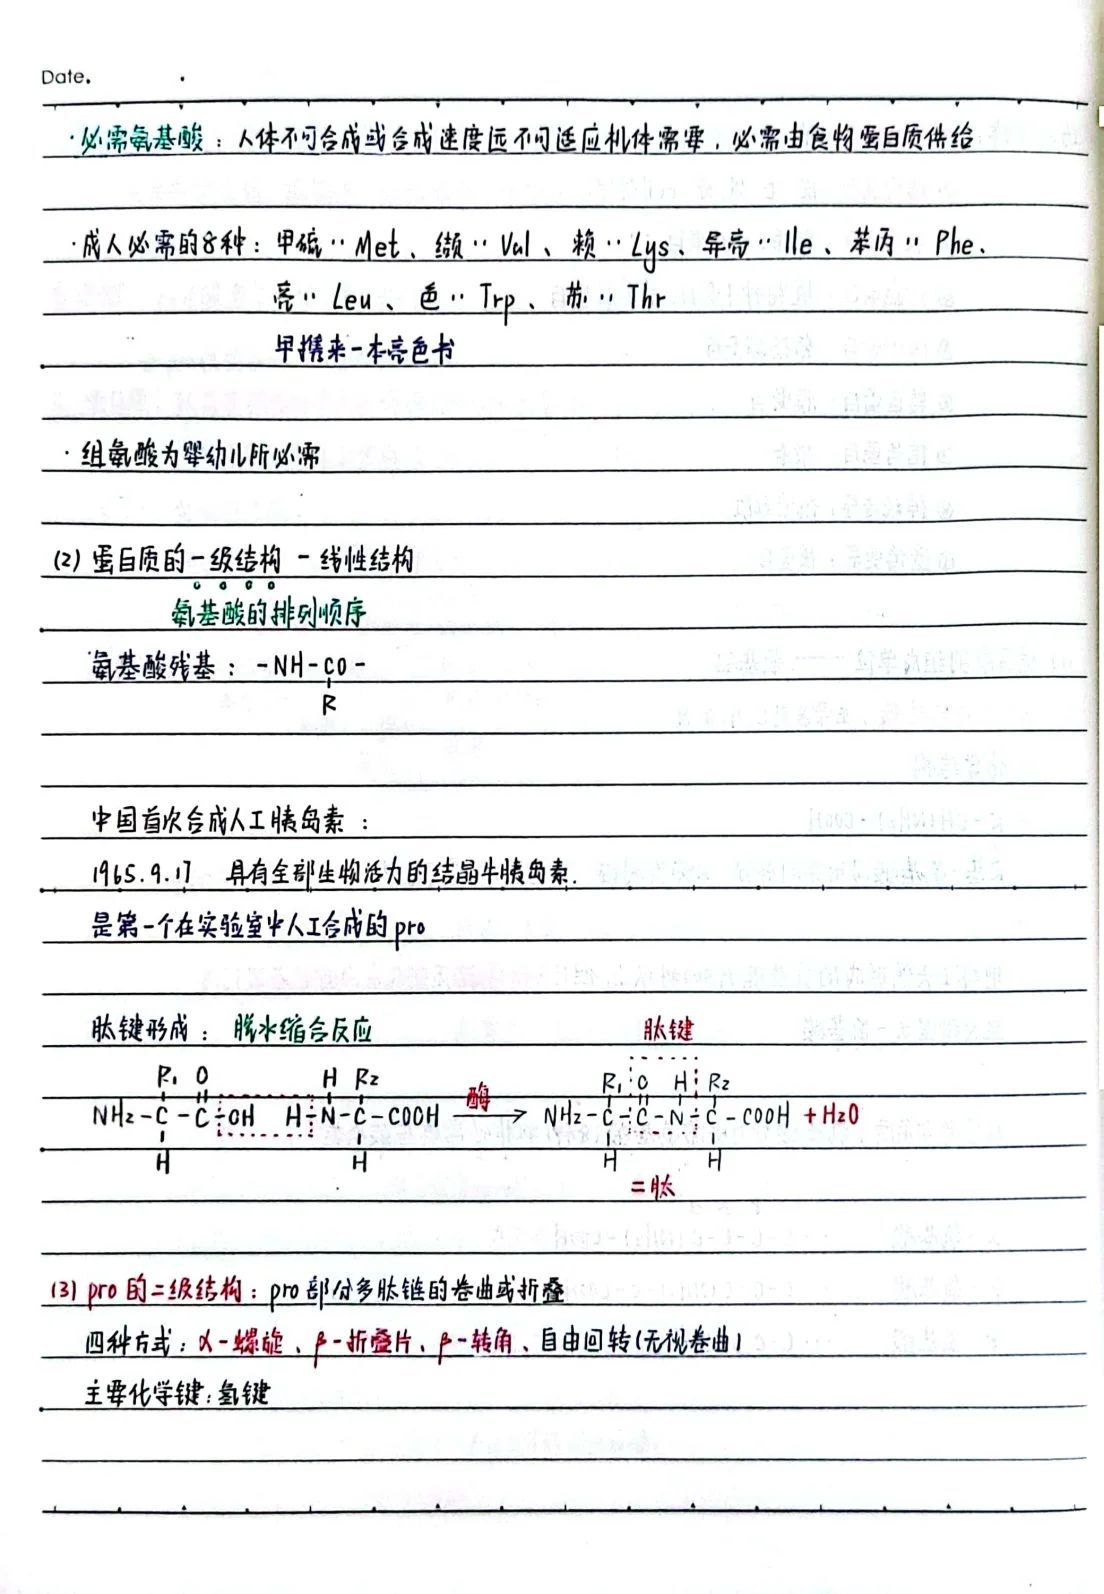 Date.
·必需氨基酸：人体不可合成或合成速度远不可适应机体需要，必需由食物蛋白质供给
·成人必需的8种：甲硫‥Met、缬‥Val、赖‥Lys、异亮‥Ile、苯丙‥Phe、
亮‥Leu、色‥Trp、苏‥Thr
甲携来一本亮色书
·组氨酸为婴幼儿所必需
(2) 蛋白质的一级结构 - 线性结构
氨基酸的排列顺序
氨基酸残基：-NH-CO-
R
中国首次合成人工胰岛素：
1965.9.17 具有全部生物活力的结晶牛胰岛素.
是第一个在实验室中人工合成的pro
肽键形成：脱水缩合反应 肽键
R₁ O H R₂ R₁ O H R₂
NH₂-C-C-OH H-N-C-COOH 酶→ NH₂-C-C-N-C-COOH +H₂O
H H H H
二肽
(3) pro的二级结构：pro部分多肽链的卷曲或折叠
四种方式：α-螺旋、β-折叠片、β-转角、自由回转(无视卷曲)
主要化学键：氢键